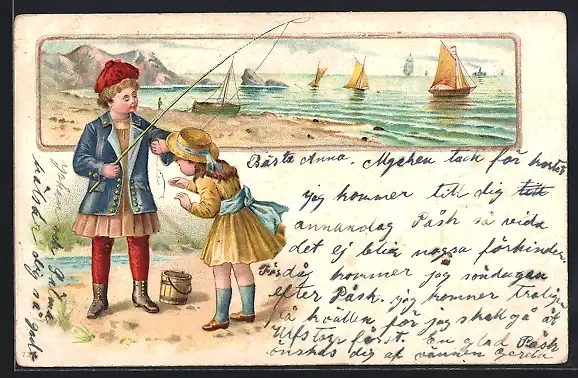 Bästa Anna. Mycken tack för kortet
jag kommer till dig till
annandag Påsk så vida
det ej blir någsa förhinder.
då kommer jag söndagen
efter Påsk. jag kommer troligen
på kvällen för jag skall gå åt
först. En glad Påsk
önskas dig af vännen Gerda
hälsar dig så